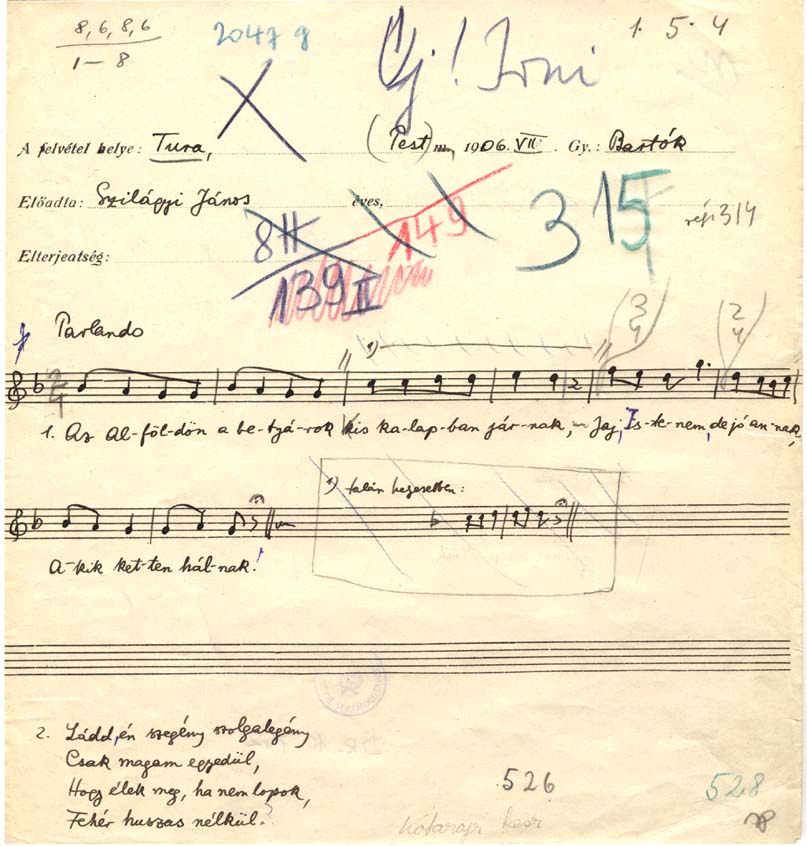 8, 6, 8, 6
1–8
2047 g
Uj! Irni
1. 5. 4
A felvétel helye: Tura, (Pest) m, 1906. VII. Gy.: Bartók
Előadta: Szilágyi János éves,
315
régi 314
Elterjeatség:
8 II
149
139 II
Parlando
3/4
2/4
1)
2/4
1. Az Al-föl-dön a be-tyá-rok kis ka-lap-ban jár-nak, Jaj, Is-te-nem, de jó an-nak,
1) talán helyesebben:
A-kik ket-ten hál-nak!
2. Ládd, én szegény szolgalegény
Csak magam egyedül,
Hogy élek meg, ha nem lopok,
Fehér huszas nélkül?
526
528